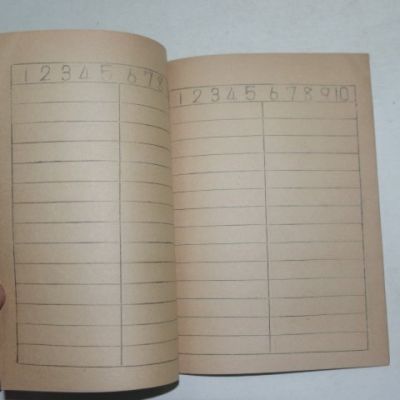 1 2 3 4 5 6 7 8
1 2 3 4 5 6 7 8 9 10